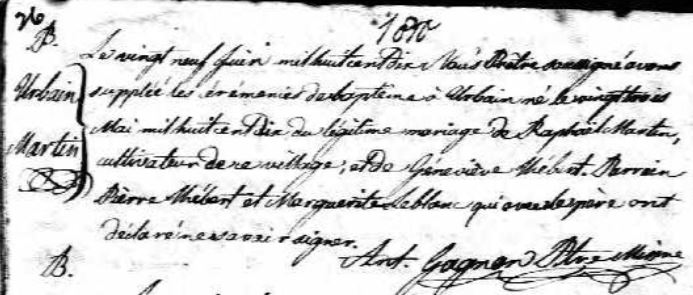 26
1810
B.
Urbain
Martin
Le vingt neuf Juin mil huit cent dix Nous Prêtre soussigné avons
suppleé les cérémonies de baptême à Urbain né le vingt trois
Mai mil huit cent dix du légitime mariage de Raphaël Martin,
cultivateur de ce village, et de Géneviève Hébert. Parrain
Pierre Hébert et Marguerite Leblanc qui avec le père ont
déclaré ne savoir signer.
Ant. Gagnon Ptre Missre
B.